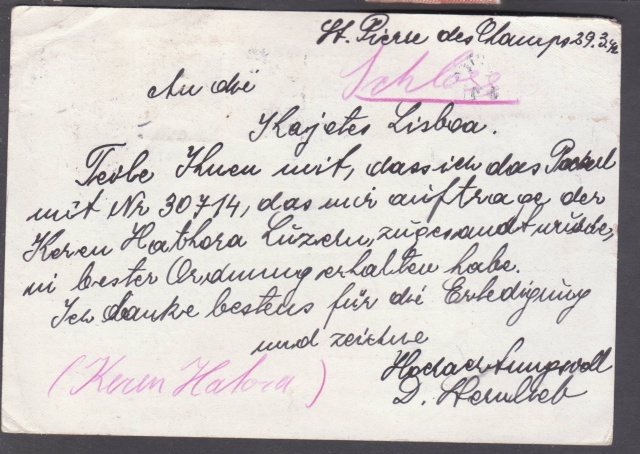 St. Pierre des Champs 29.3.42
Schloss
An die
Kajetes Lisboa.
Teile Ihnen mit, dass ich das Packerl
mit Nr 30714, das mir auftrage der
Keren Hathora Luzern, zugesandt wurde,
in bester Ordnung erhalten habe.
Ich danke bestens für die Erledigung
und zeichne
Hochachtungsvoll
(Keren Hatora) D. Sternlieb